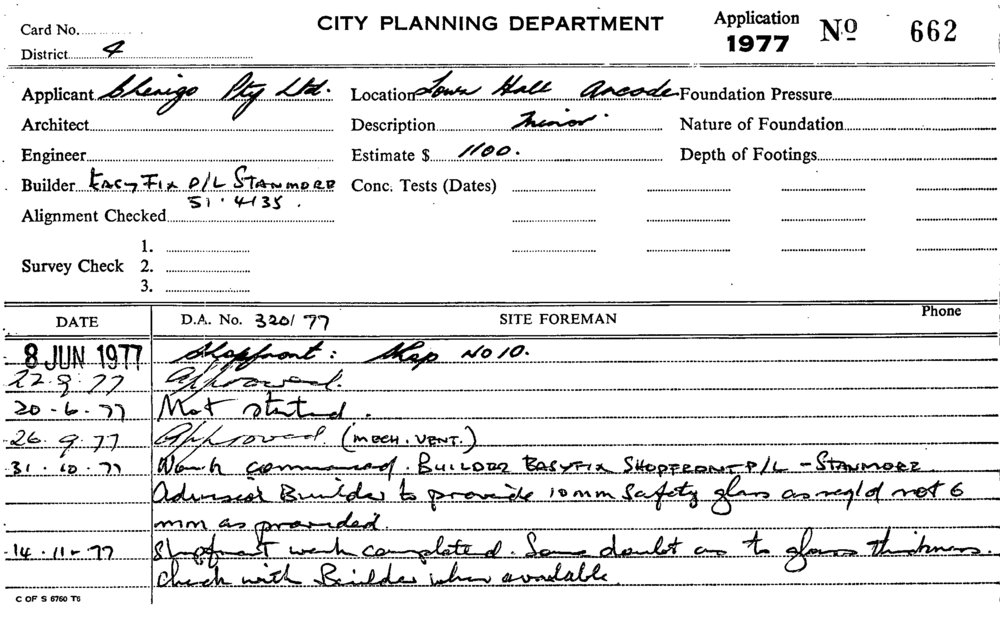 CITY PLANNING DEPARTMENT
Application 1977 No 662
Card No.
District 4
Applicant Chenigo Pty Ltd. Location Town Hall Arcade Foundation Pressure
Architect Description Minor. Nature of Foundation
Engineer Estimate $ 1100. Depth of Footings
Builder EASYFIX P/L STANMORE Conc. Tests (Dates)
51.4135.
Alignment Checked
1.
Survey Check 2.
3.
DATE D.A. No. 320/77 SITE FOREMAN Phone
8 JUN 1977 Shopfront: Shop No 10.
22.9.77 Approved.
20-6-77 Not started.
26.9.77 Approved. (MECH. VENT.)
31.10.77 Work commenced. BUILDER EASYFIX SHOPFRONT P/L - STANMORE
Advised Builder to provide 10mm Safety glass as req'd not 6
mm as provided.
14-11-77 Shopfront work completed. Some doubt as to glass thickness.
Check with Builder when available.
C OF S 6760 T6